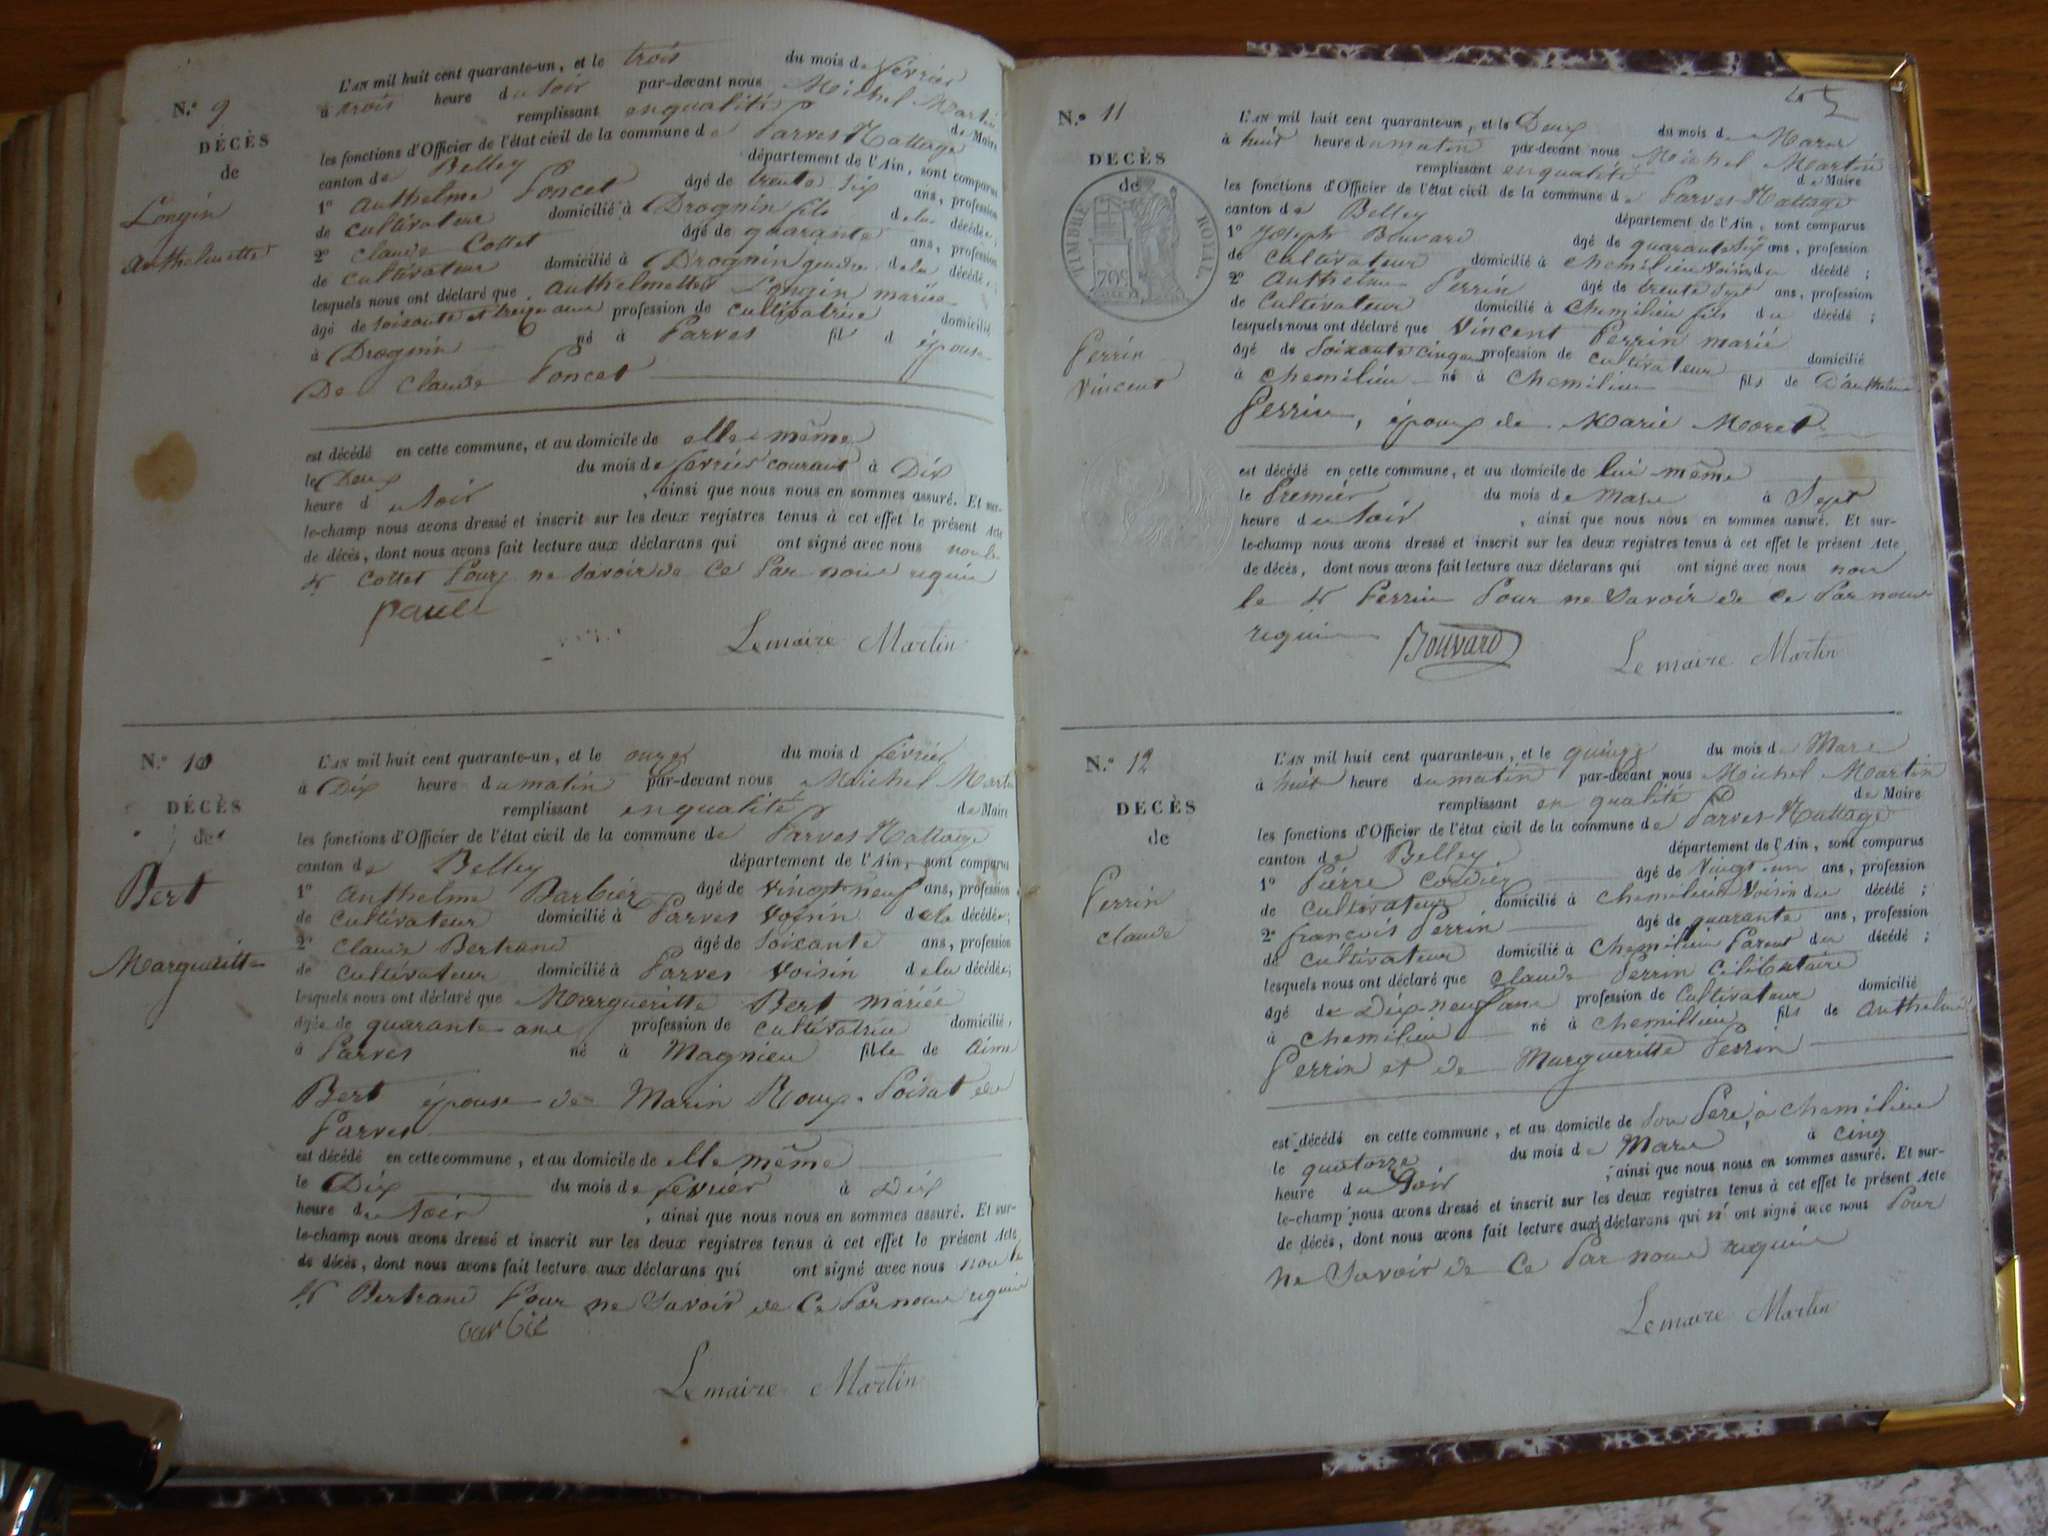 N.º 9
DÉCÈS
de
Longin
Anthelmette
L'AN mil huit cent quarante-un, et le trois du mois de février
à trois heure du soir par-devant nous Michel Martin
remplissant en qualité de Maire
les fonctions d'Officier de l'état civil de la commune de Parves Nattage
canton de Belley département de l'Ain, sont comparus
1º Anthelme Poncet âgé de trente six ans, profession
de cultivateur domicilié à Drognin fils de la décédée;
2º Claude Cottet âgé de quarante ans, profession
de cultivateur domicilié à Drognin gendre de la décédé;
lesquels nous ont déclaré que Anthelmette Longin mariée
âgé de soixante et treize ans profession de cultivatrice domicilié
à Drognin né à Parves fil d épouse
De Claude Poncet
est décédé en cette commune, et au domicile de elle même
le Deux du mois de février courant à Dix
heure du soir, ainsi que nous nous en sommes assuré. Et sur-
le-champ nous avons dressé et inscrit sur les deux registres tenus à cet effet le présent Acte
de décès, dont nous avons fait lecture aux déclarans qui ont signé avec nous non le
Cottet Pour ne savoir de ce par nous requis
Le maire Martin
N.º 10
DÉCÈS
de
Bert
Margueritte
L'AN mil huit cent quarante-un, et le onze du mois d février
à Dix heure du matin par-devant nous Michel Martin
remplissant en qualité de Maire
les fonctions d'Officier de l'état civil de la commune de Parves Nattage
canton de Belley département de l'Ain, sont comparus
1º Anthelme Barbier âgé de vingt neuf ans, profession
de cultivateur domicilié à Parves Voisin de la décédée;
2º Claude Bertrand âgé de soixante ans, profession
de cultivateur domicilié à Parves Voisin de la décédée;
lesquels nous ont déclaré que Margueritte Bert mariée
âgée de quarante ans profession de cultivatrice domicilié,
à Parves né à Magnieu fille de Aimé
Bert épouse de Marin Roux-Poisat de
Parves
est décédé en cette commune, et au domicile de elle même
le Dix du mois de février à Dix
heure du soir, ainsi que nous nous en sommes assuré. Et sur-
le-champ nous avons dressé et inscrit sur les deux registres tenus à cet effet le présent Acte
de décès, dont nous avons fait lecture aux déclarans qui ont signé avec nous non le
Bertrand Pour ne savoir de ce par nous requis
Le maire Martin
N.º 11
DECÈS
de
TIMBRE ROYAL
70c
Perrin
Vincent
L'AN mil huit cent quarante-un, et le Deux du mois de Mars
à huit heure du matin par-devant nous Michel Martin
remplissant en qualité de Maire
les fonctions d'Officier de l'état civil de la commune de Parves Nattage
canton de Belley département de l'Ain, sont comparus
1º Joseph Bouvard âgé de quarante six ans, profession
de cultivateur domicilié à chemilieu voisin du décédé;
2º Anthelme Perrin âgé de trente sept ans, profession
de cultivateur domicilié à Chemilieu fils du décédé;
lesquels nous ont déclaré que Vincent Perrin marié
âgé de soixante cinq ans profession de cultivateur domicilié
à chemilieu né à Chemilieu fils de D'anthelme
Perrin, époux de Marie Moret
est décédé en cette commune, et au domicile de lui-même
le Premier du mois de Mars à Sept
heure du soir, ainsi que nous nous en sommes assuré. Et sur-
le-champ nous avons dressé et inscrit sur les deux registres tenus à cet effet le présent Acte
de décès, dont nous avons fait lecture aux déclarans qui ont signé avec nous non
le Perrin Pour ne savoir de ce par nous
requis Bouvard Le maire Martin
N.º 12
DECÈS
de
Perrin
claude
L'AN mil huit cent quarante-un, et le quinze du mois de Mars
à huit heure du matin par-devant nous Michel Martin
remplissant en qualité de Maire
les fonctions d'Officier de l'état civil de la commune de Parves Nattage
canton de Belley département de l'Ain, sont comparus
1º Pierre Cordier âgé de vingt-un ans, profession
de cultivateur domicilié à chemilieu Voisin du décédé;
2º françois Perrin âgé de quarante ans, profession
de cultivateur domicilié à chemilieu Parent du décédé;
lesquels nous ont déclaré que claude Perrin célibataire
âgé de Dix-neuf ans profession de Cultivateur domicilié
à chemilieu né à chemillieu fils de Anthelme
Perrin et de Margueritte Perrin
est décédé en cette commune, et au domicile de son Père, à chemilieu
le quatorze du mois de Mars à cinq
heure du soir, ainsi que nous nous en sommes assuré. Et sur-
le-champ nous avons dressé et inscrit sur les deux registres tenus à cet effet le présent Acte
de décès, dont nous avons fait lecture aux déclarans qui ont signé avec nous Pour
ne savoir de ce par nous requis
Le maire Martin